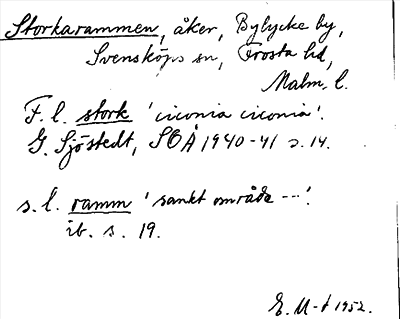 Storkarammen, åker, Bylycke by,
Svensköps sn, Frosta hd,
Malm. l.
F. l. stork 'ciconia ciconia'.
G. Sjöstedt, SOÅ 1940-41 s. 14.
s. l. ramm 'sankt område ---'.
ib. s. 19.
E. M-t 1952.